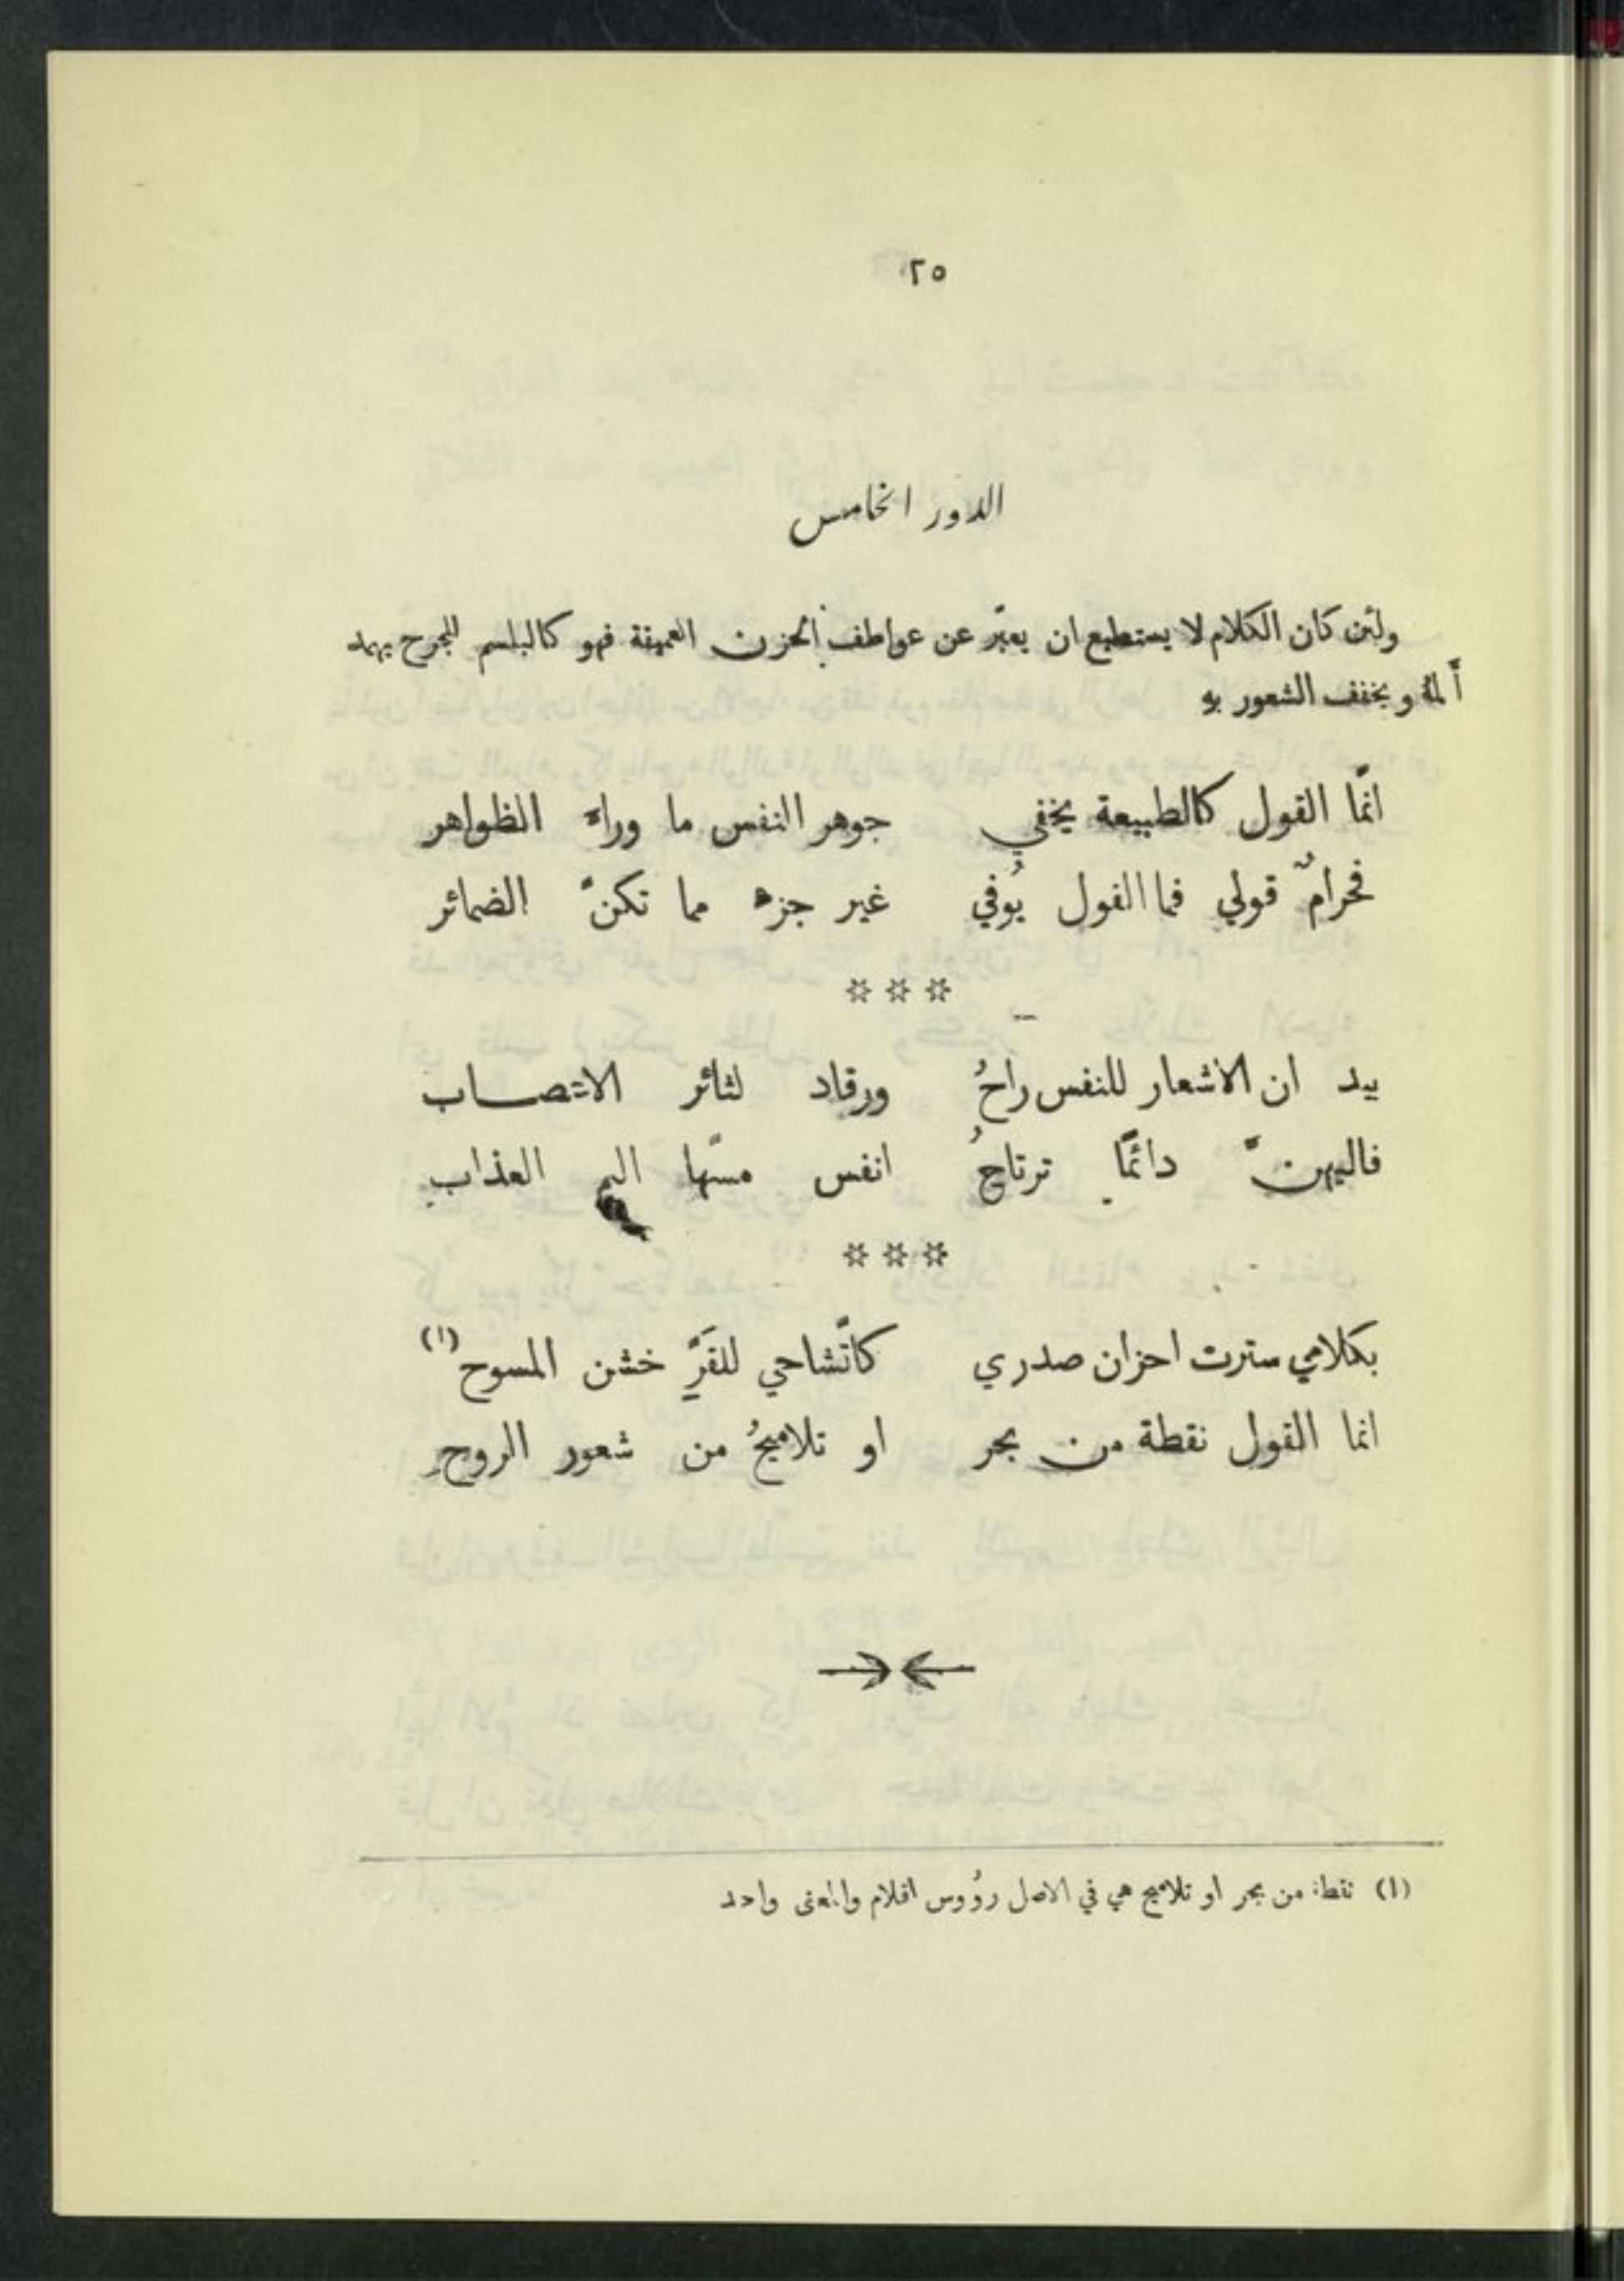 ٢٥
الدور الخامس
ولئن كان الكلام لا يستطيع ان يعبّر عن عواطف الحزن العميقة فهو كالبلسم للجرح يهمد
ألمهُ ويخفف الشعور به
انمَّا القول كالطبيعة يخفي جوهر النفس ما وراءَ الظواهر
فحرامٌ قولي فما القول يُوفي غير جزء مما تكنّ الضمائر
***
بيد ان الاشعار للنفس راحُ ورقاد لثائر الاعتصاب
فاليهنّ دائمًا ترتاحُ انفس مسّها اليم العذاب
***
بكلامي سترت احزان صدري كاتّشاحي للقَرِّ خشن المسوح (١)
انما القول نقطة من بحر او تلاميحُ من شعور الروحِ
(١) نقطة من بحر او تلاميح هي في الاصل رؤُوس اقلام والمعنى واحد